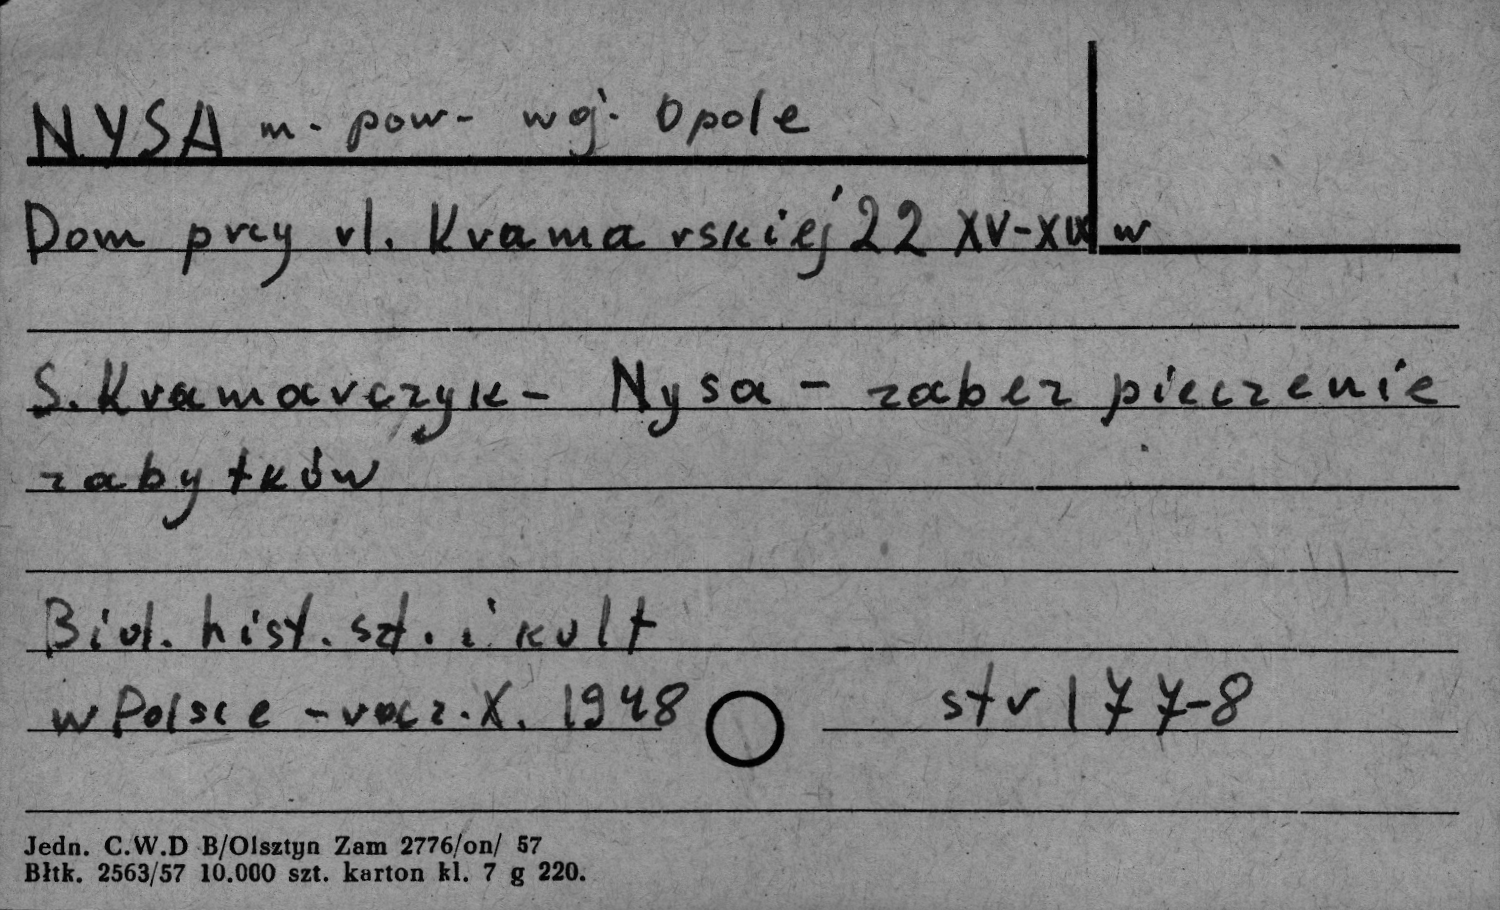 NYSA m. pow. woj. Opole
Dom przy ul. Kramarskiej 22 XV-XIX w
S. Kramarczyk - Nysa - zabezpieczenie
zabytków
Biul. hist. szt. i kult
w Polsce - rocz. X. 1948 str 177-8
Jedn. C.W.D B/Olsztyn Zam 2776/on/ 57
Błtk. 2563/57 10.000 szt. karton kl. 7 g 220.